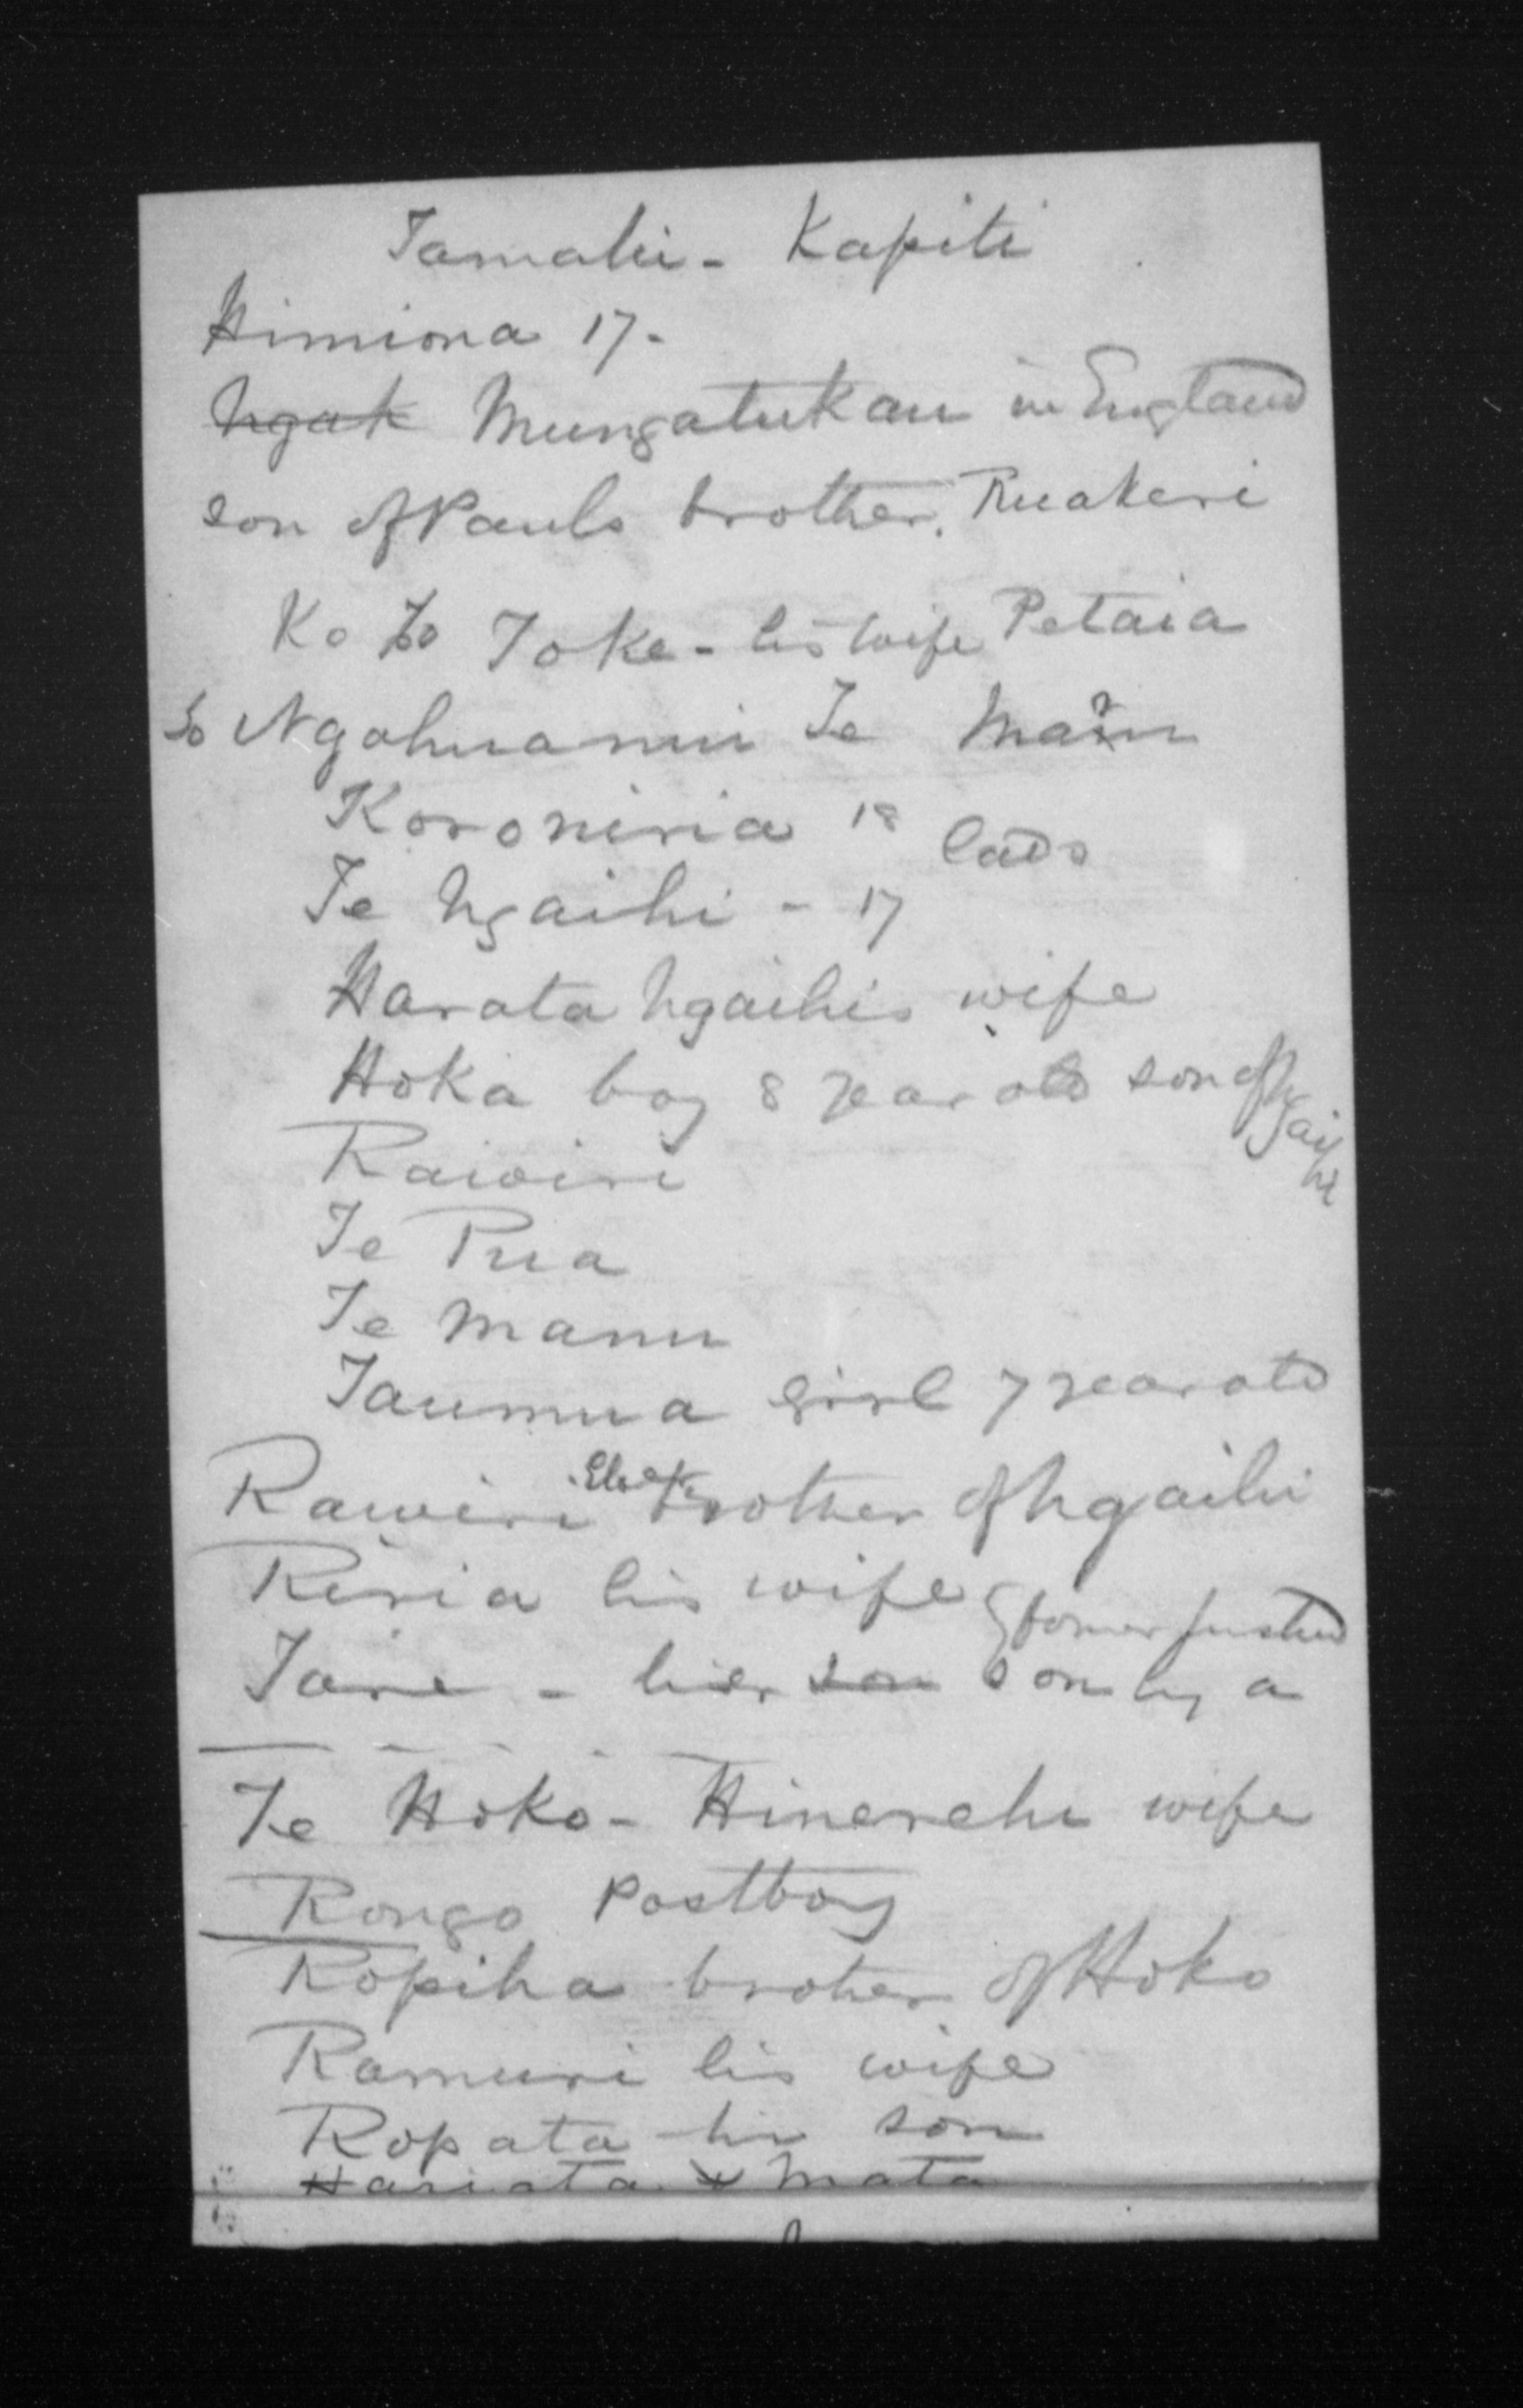 Tamahi - Kapiti
Himiona 17.
Ngak Mungatukau in England
son of Pauls brother. Ruakeri
Ko Toke - his wife Petaia
Ngahuanui Te
Koroniria 18 lads
Te Ngaihi - 17
Harata Ngaihis wife
Hoka boy 8 year old son of Ngaihi
Rawiri
Te Pua
Te Manu
Taumua girl 7 year old
Rawiri Elder brother of Ngaihi
Riria his wife
Tare - her son son by a former husband
Te Hoko - Hinerehe wife
Rongo Postboy
Ropiha broher of Hoko
Ramuri his wife
Ropata his son
Hariata & Mata